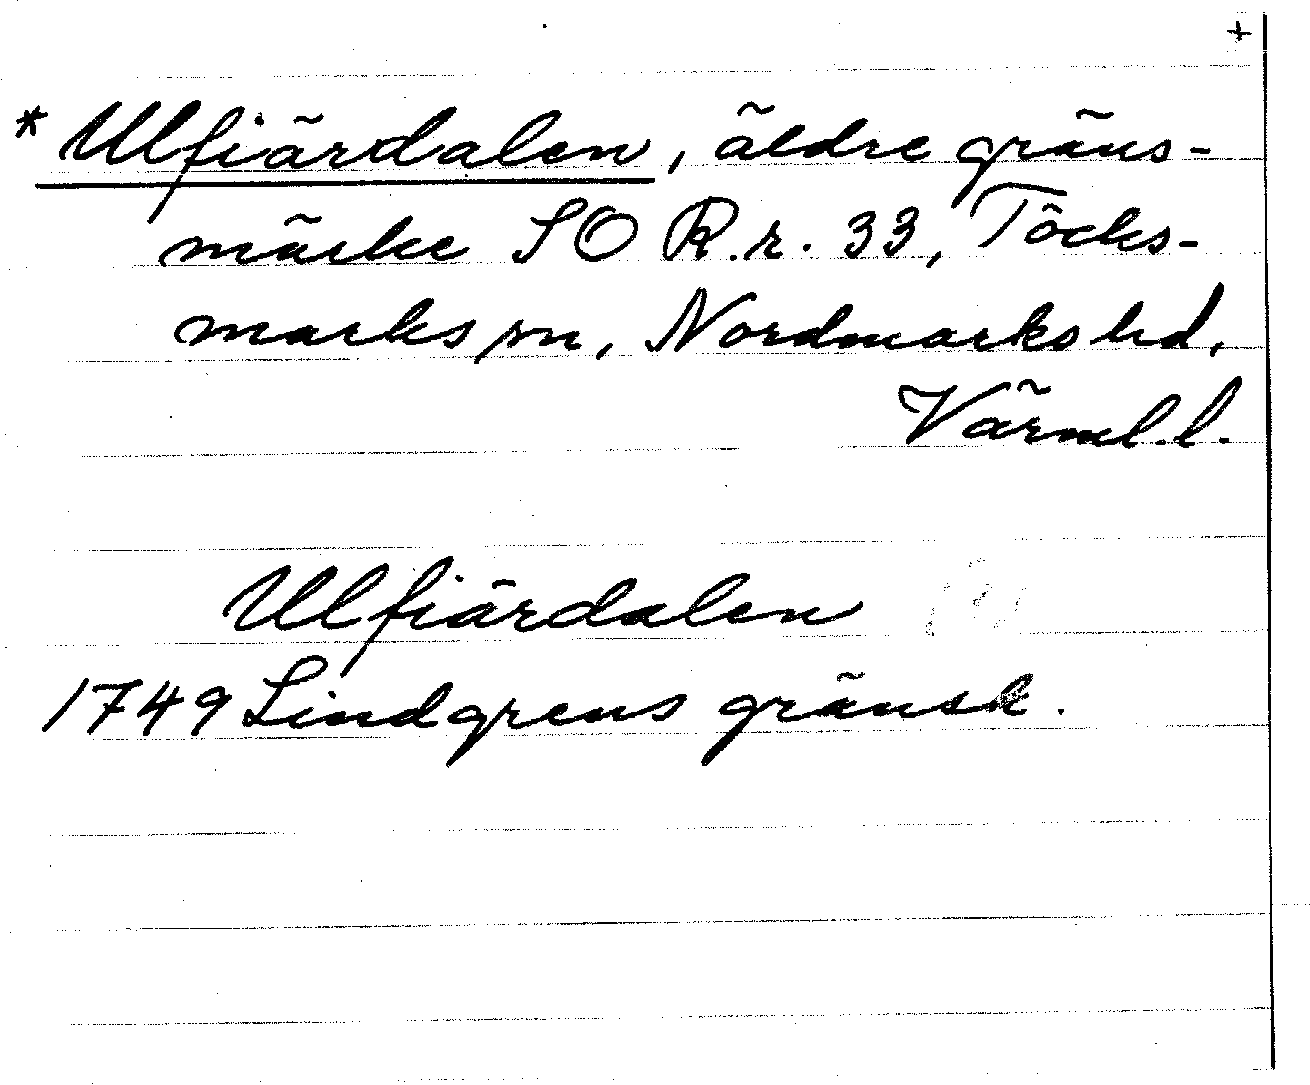 +
* Ulfiärdalen, äldre gräns-
märke SO R.r. 33, Töcks-
marks sn, Nordmarks hd,
Värml. l.
Ulfiärdalen (?)
1749 Lindgrens gränsk.